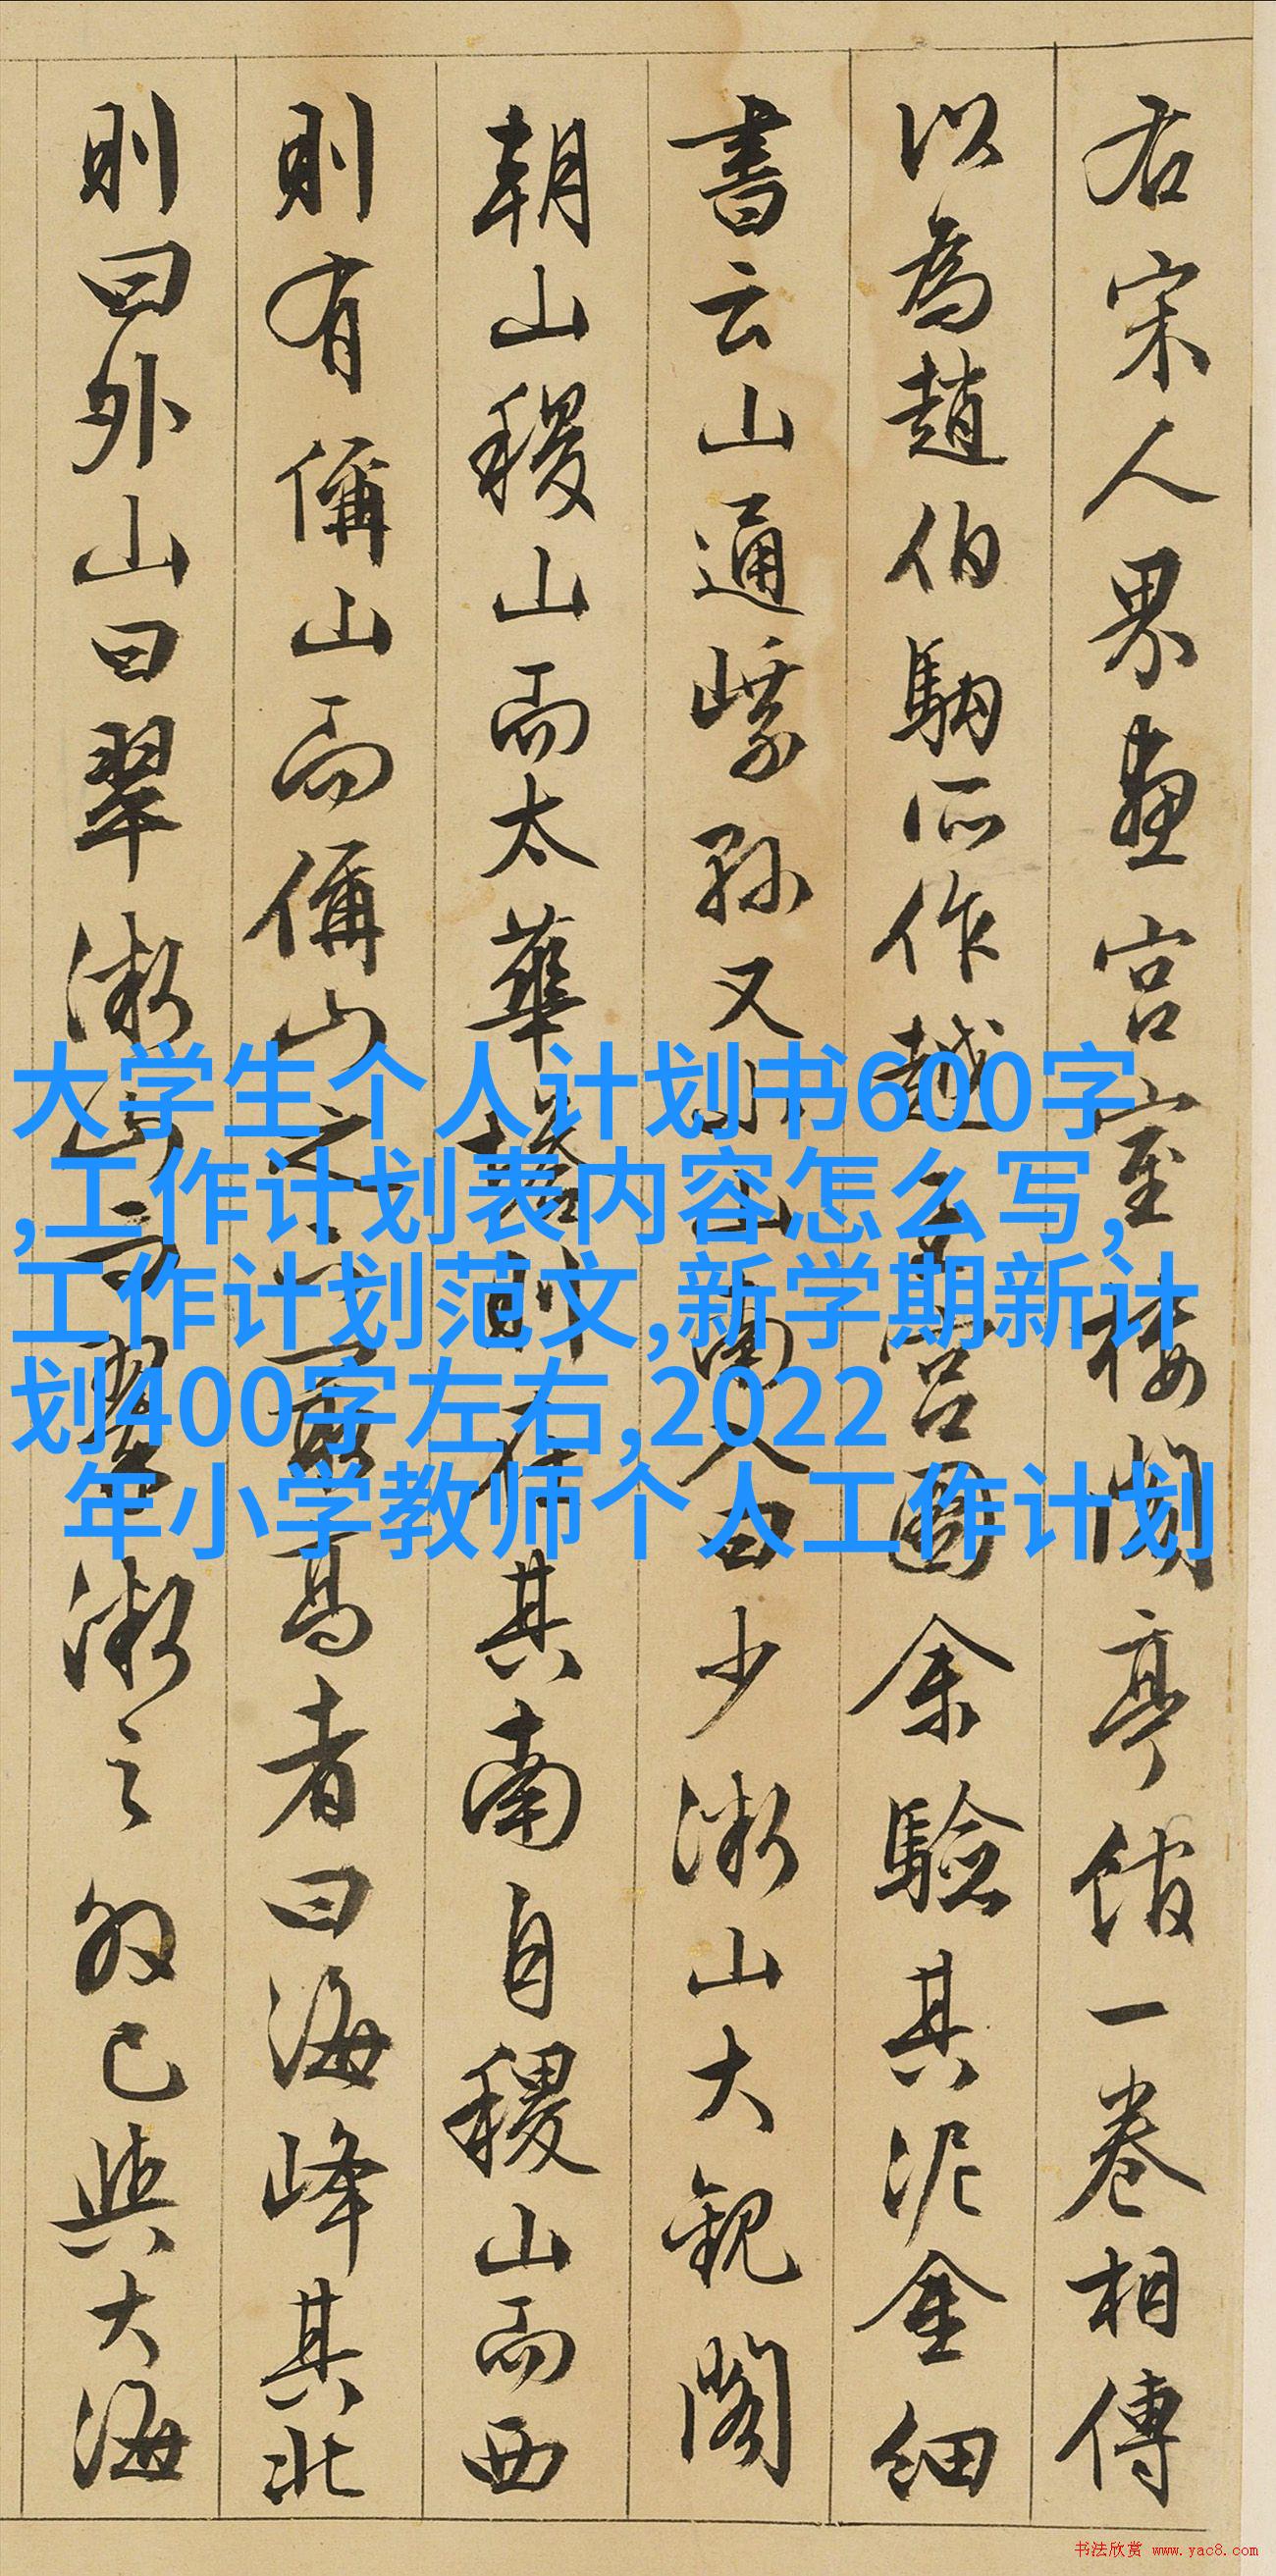 右宋人界畫宮室樓閣亭館一卷相傳
以為趙伯駒所作越王宮圖余驗其泥金細
書云山通孫又小山南入曰少微山大觀閣
朝山稷山而太華塔則在其南自稷山而西
則有偁山而偁山之最高者曰海峰其北
則曰外山曰翠微山翠微之外已與大海
大学生个人计划书600字
,工作计划表内容怎么写,
工作计划范文,新学期新计
划400字左右,2022
年小学教师个人工作计划
书法欣赏 www.yac8.com